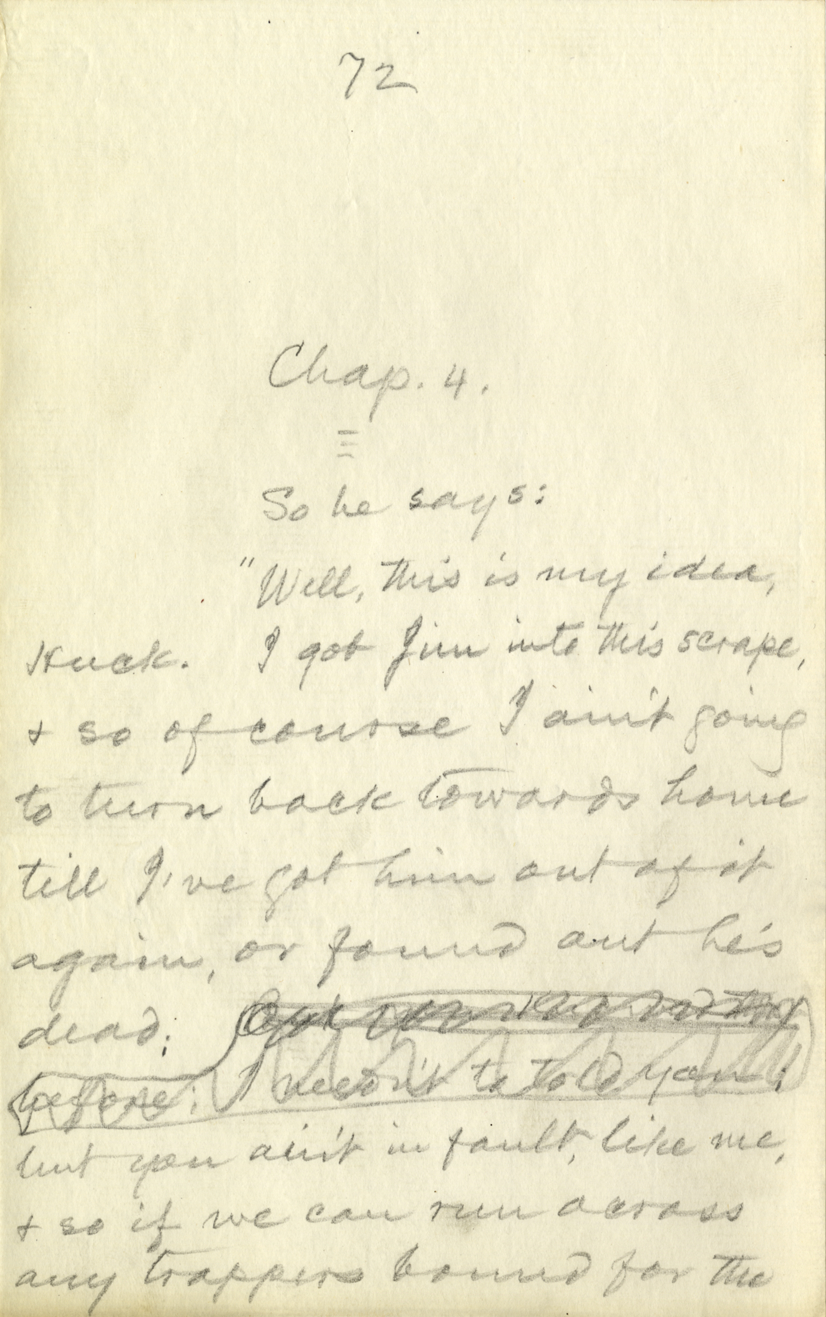 72
Chap. 4.
So he says:
"Well, this is my idea,
Huck. I got Jim into this scrape,
& so of course I ain't going
to turn back towards home
till I've got him out of it
again, or found out he's
dead;
before; I needn't to told you;
but you ain't in fault, like me,
& so if we can run across
any trappers bound for the